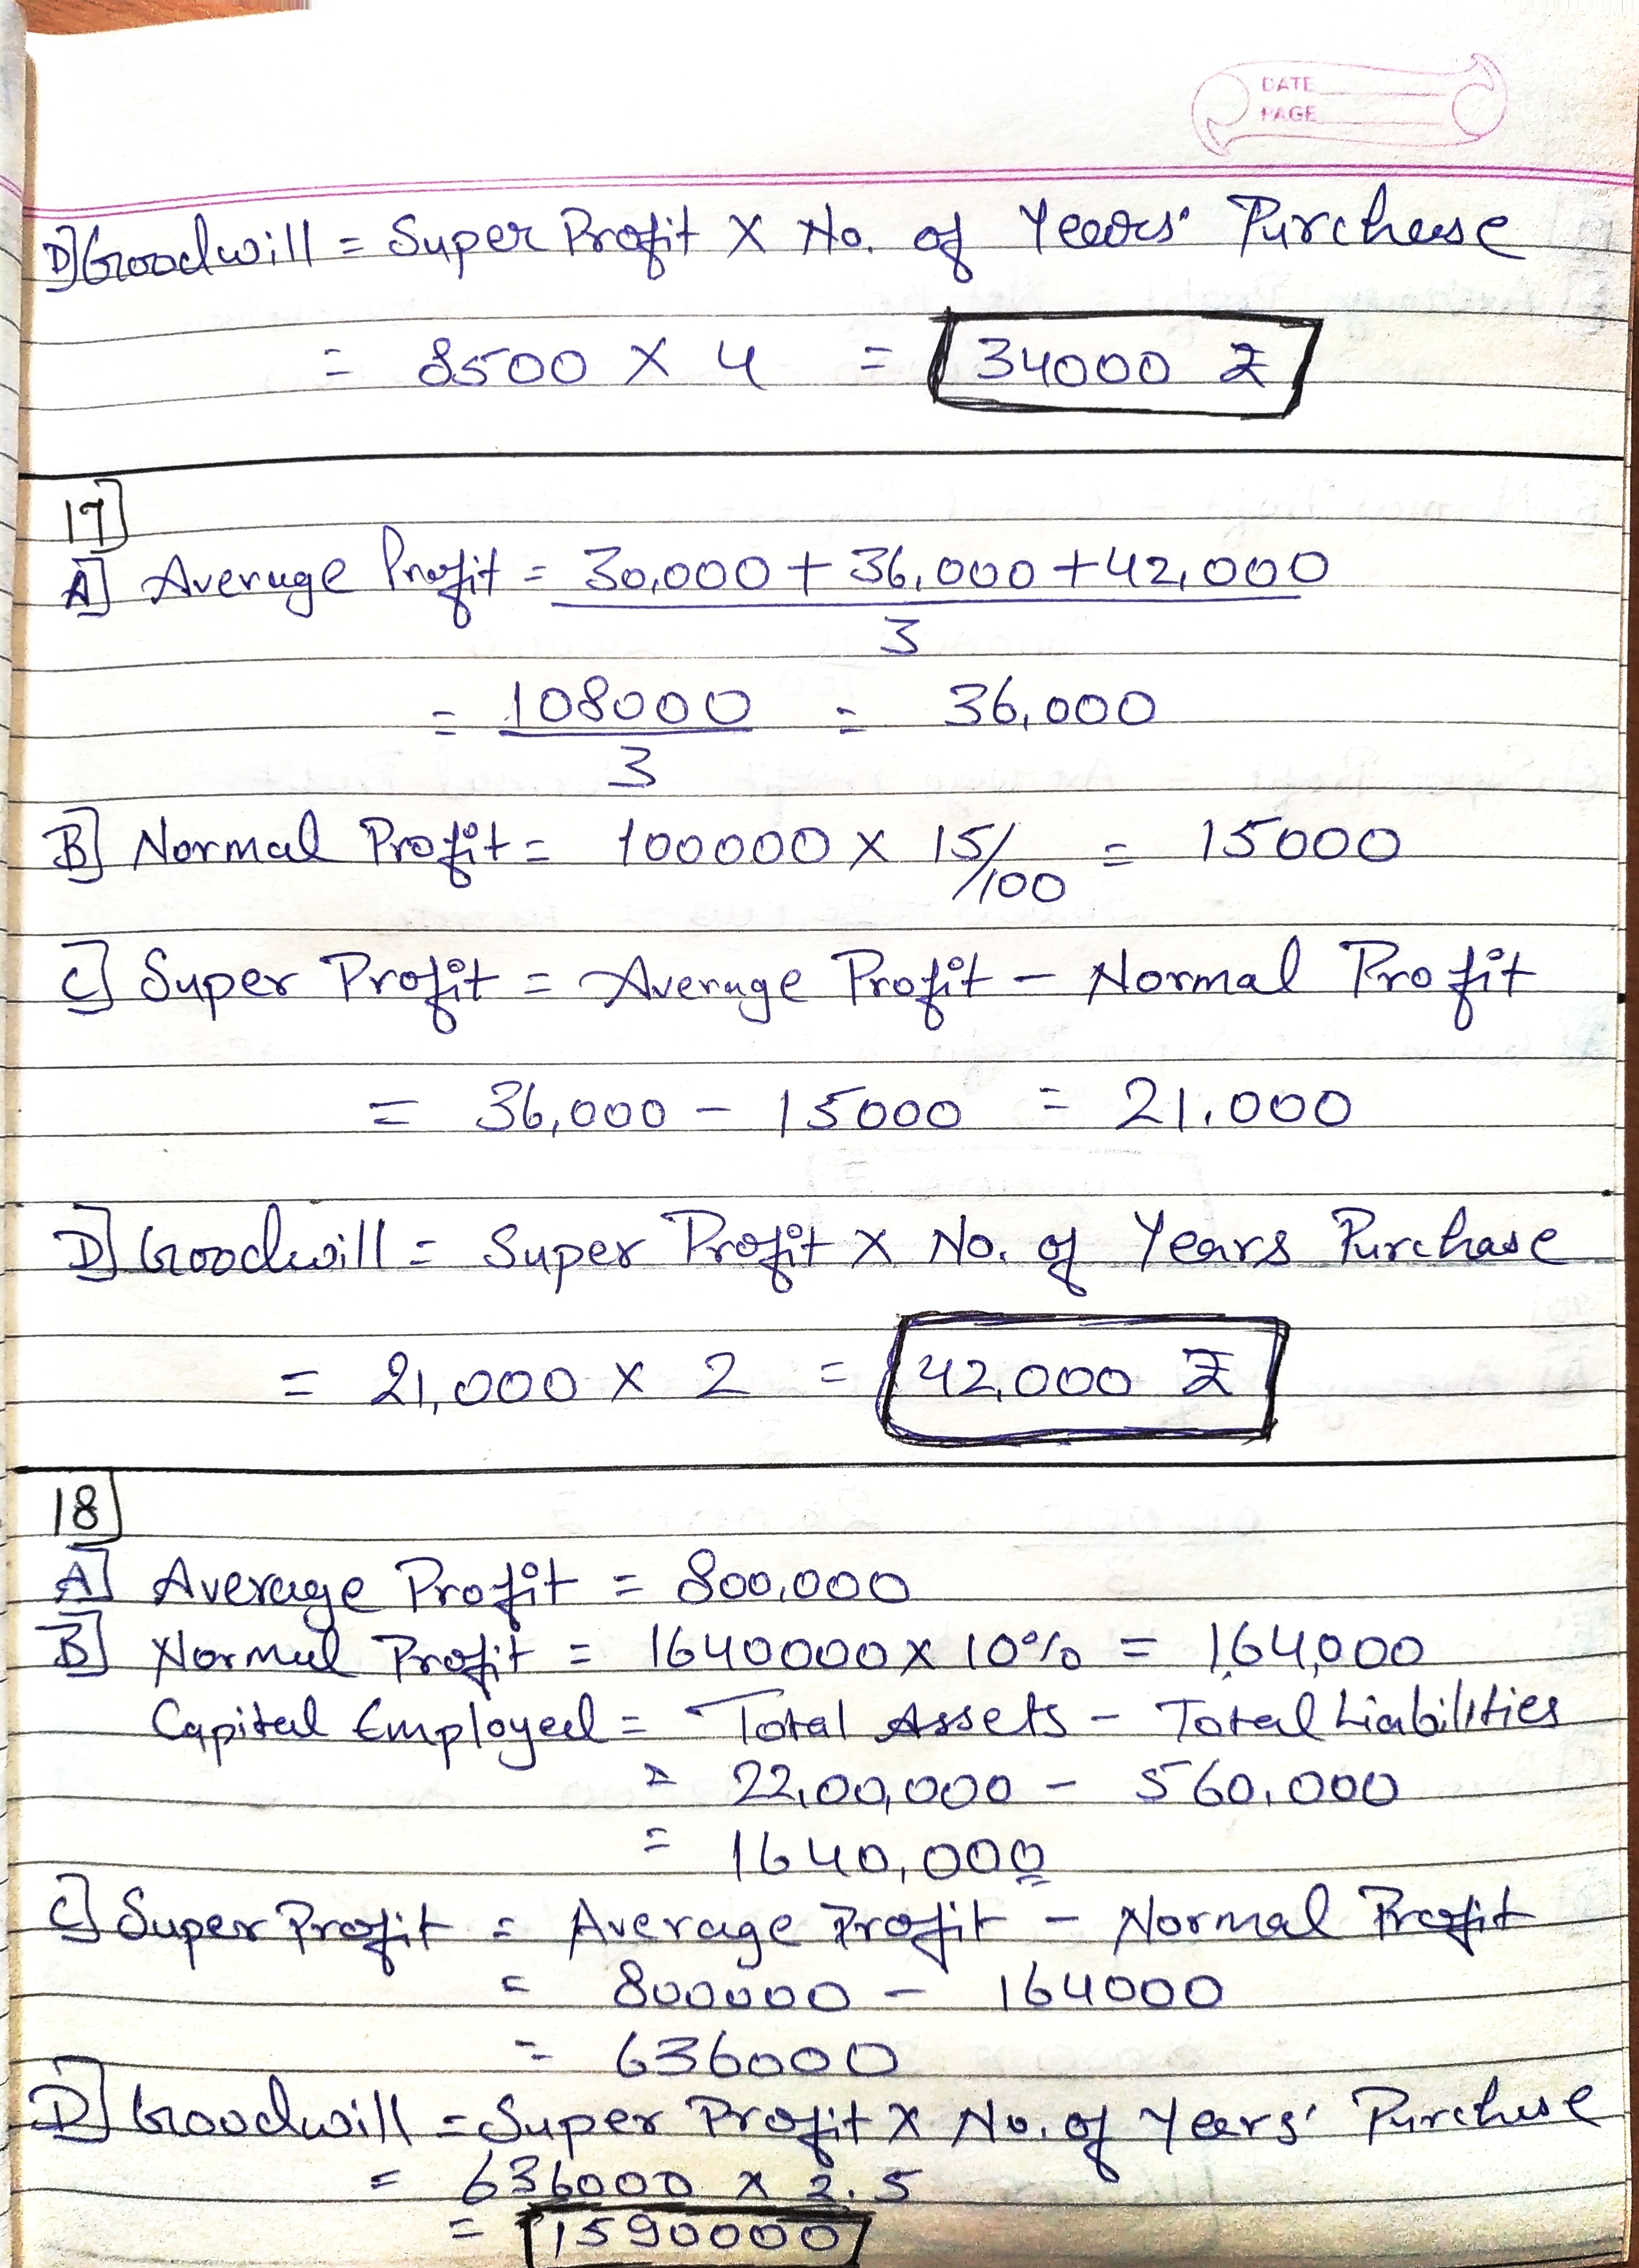 DATE
PAGE
D] Goodwill = Super Profit × No. of Years' Purchase
= 8500 × 4 = 34000 ₹
17]
A] Average Profit = 30,000 + 36,000 + 42,000
3
= 108000 = 36,000
3
B] Normal Profit = 100000 × 15/100 = 15000
C] Super Profit = Average Profit - Normal Profit
= 36,000 - 15000 = 21.000
D] Goodwill = Super Profit × No. of Years Purchase
= 21,000 × 2 = 42,000 ₹
18]
A] Average Profit = 800,000
B] Normal Profit = 1640000 × 10% = 1,64,000
Capital Employed = Total Assets - Total Liabilities
= 22,00,000 - 560,000
= 1640,000
C] Super Profit = Average Profit - Normal Profit
= 800000 - 164000
= 636000
D] Goodwill = Super Profit × No. of Years' Purchase
= 636000 × 2.5
= 1590000